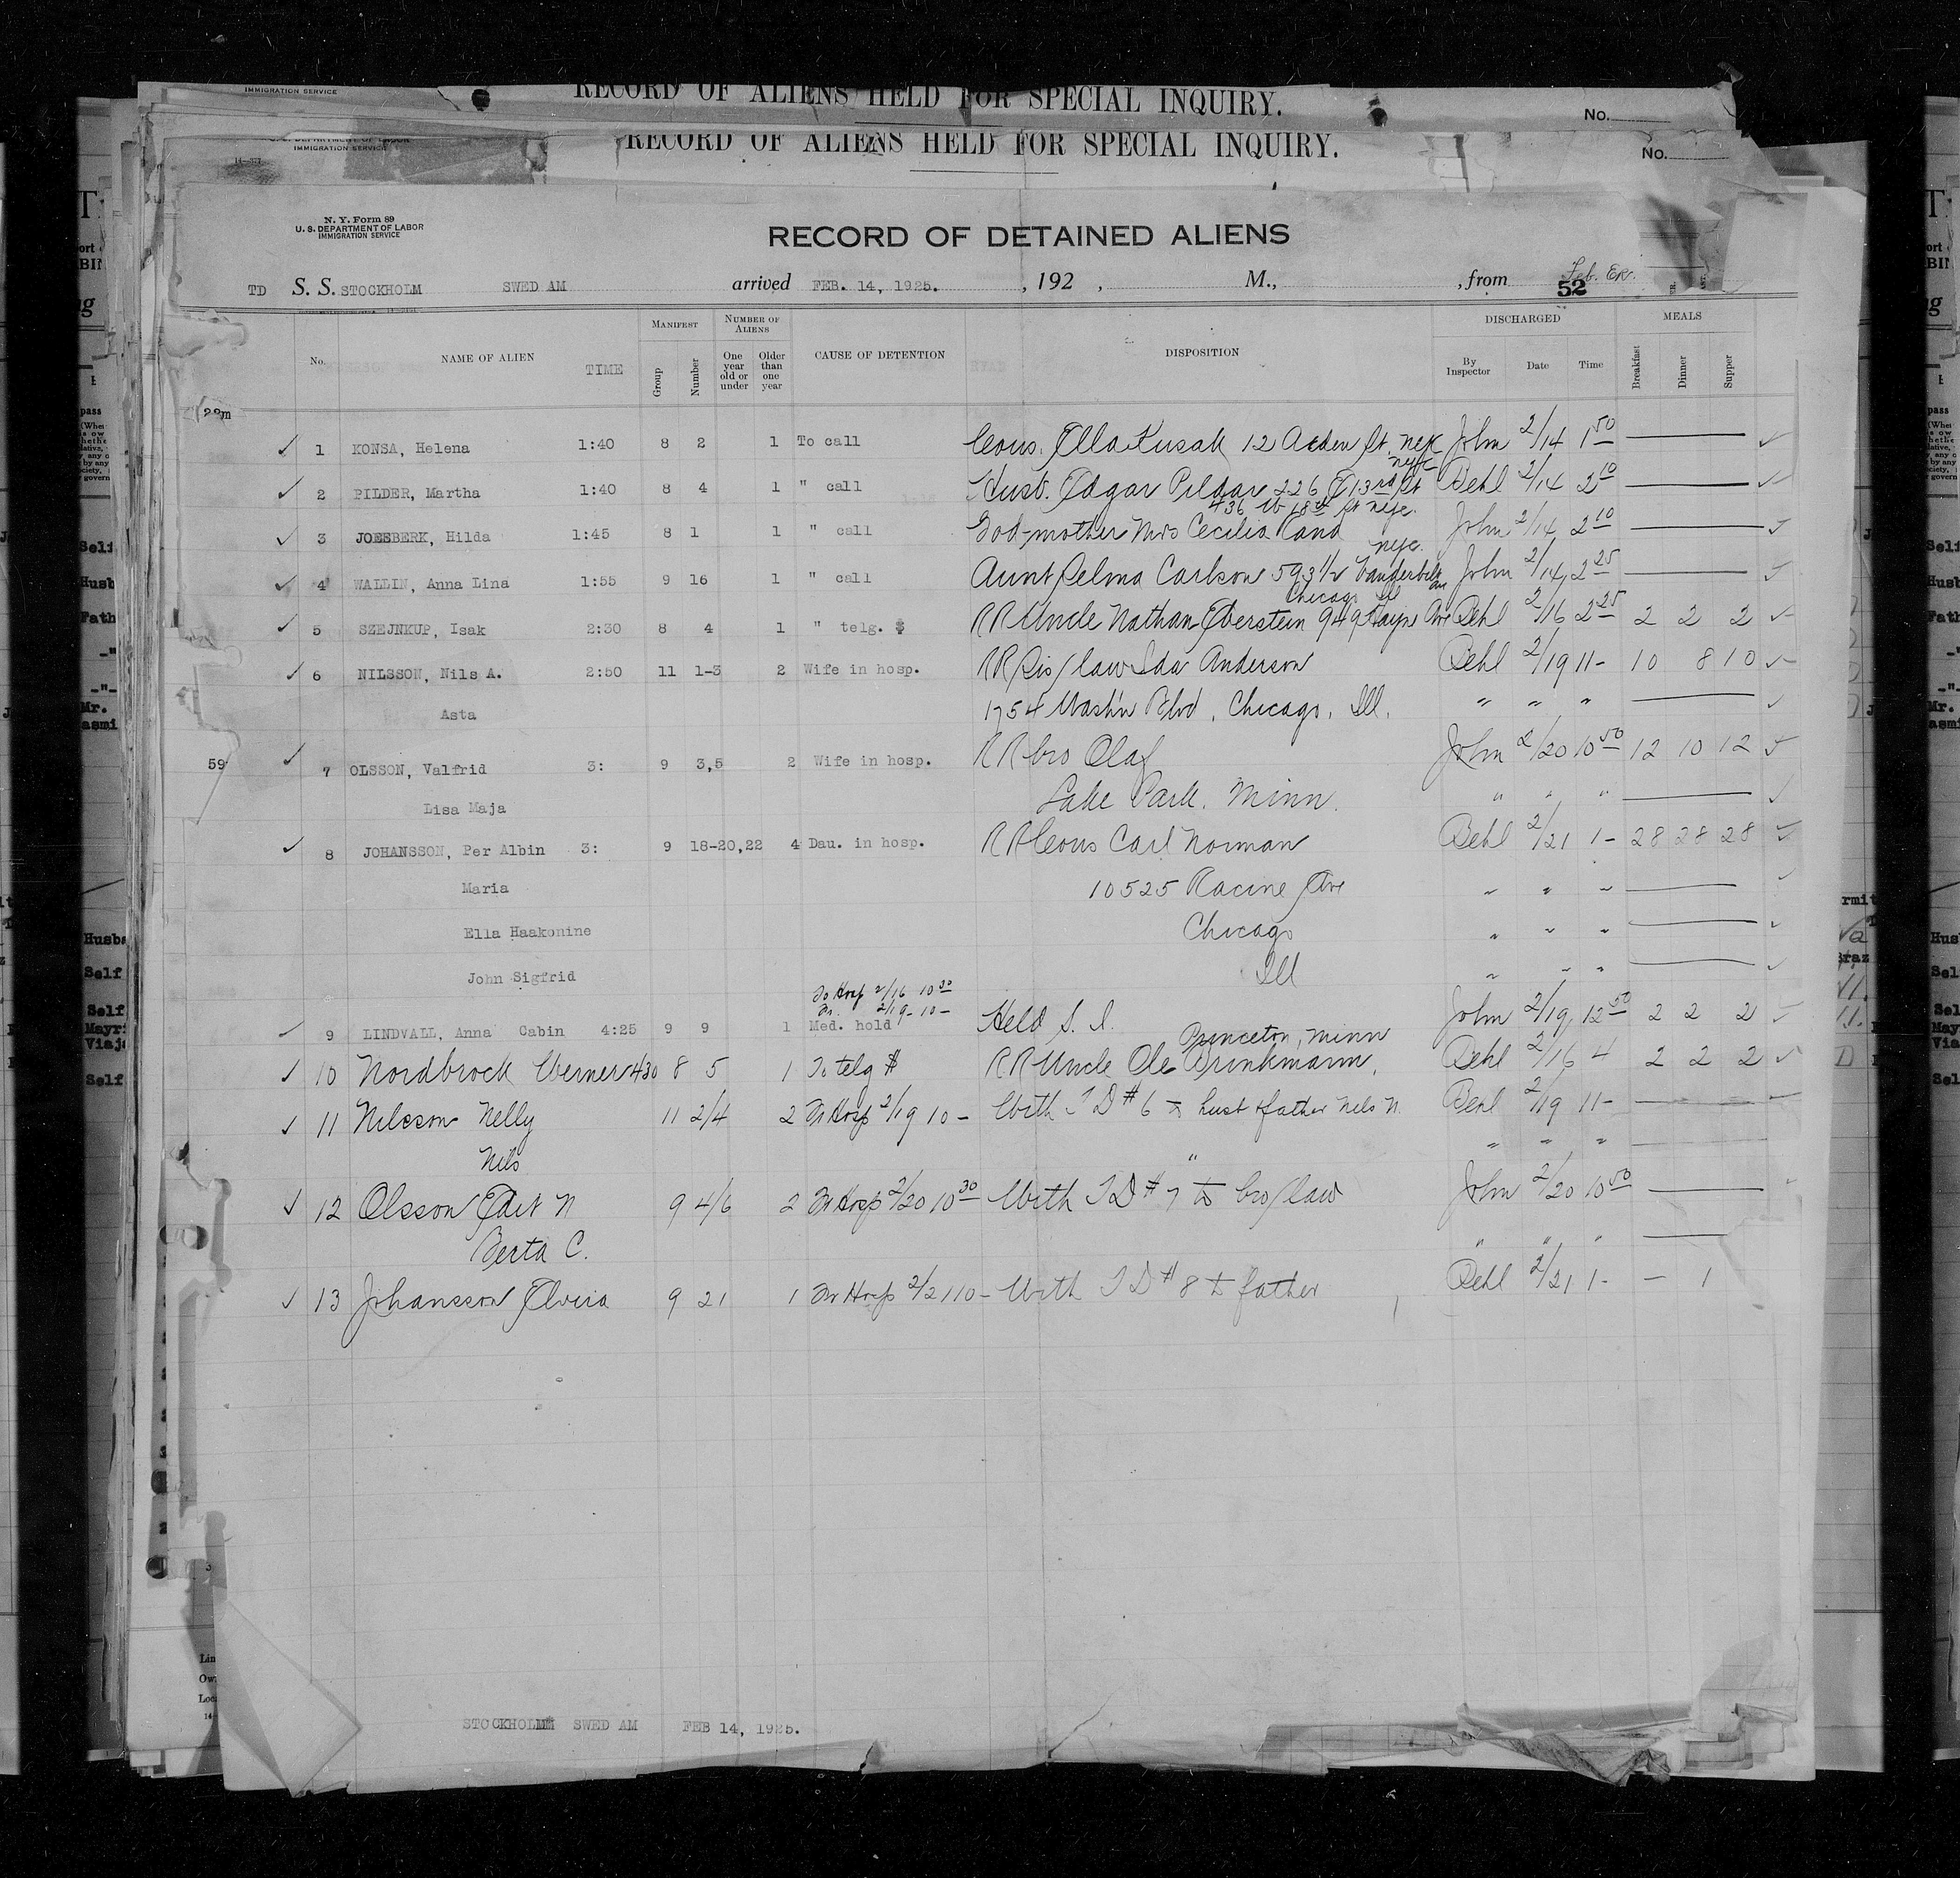 IMMIGRATION SERVICE
RECORD OF ALIENS HELD FOR SPECIAL INQUIRY.
No.
IMMIGRATION SERVICE
RECORD OF ALIENS HELD FOR SPECIAL INQUIRY.
No.
N. Y. Form 89
U. S. DEPARTMENT OF LABOR
IMMIGRATION SERVICE
RECORD OF DETAINED ALIENS
TD S. S. STOCKHOLM SWED AM arrived FEB. 14, 1925. , 192 , M., , from 52
No. NAME OF ALIEN TIME MANIFEST Group Number NUMBER OF ALIENS One year old or under Older than one year CAUSE OF DETENTION DISPOSITION DISCHARGED By Inspector Date Time MEALS Breakfast Dinner Supper
1 KONSA, Helena 1:40 8 2 1 To call Cous. Ella Kusak 12 St. NYC John 2/14 1 50
NYC
2 PILDER, Martha 1:40 8 4 1 " call Husb. Edgar Pildar 226 E 13rd St Behl 2/14 2 10
436 W 18th St NYC.
3 JOESBERK, Hilda 1:45 8 1 1 " call God-mother Mrs Cecilia Rand John 2/14 2 10
NYC.
4 WALLIN, Anna Lina 1:55 9 16 1 " call Aunt Selma Carlson 593 1/2 Vanderbilt Av John 2/14 2 25
Chicago Ill
5 SZEJNKUP, Isak 2:30 8 4 1 " telg. $ RR Uncle Nathan Eberstein 949 Ave Behl 2/16 2 25 2 2 2
6 NILSSON, Nils A. 2:50 11 1-3 2 Wife in hosp. RR Sis/law Ida Anderson Behl 2/19 11- 10 8 10
Asta 1754 Wash'n Blvd, Chicago, Ill. " " "
59 7 OLSSON, Valfrid 3: 9 3,5 2 Wife in hosp. RR bro Olaf John 2/20 10 50 12 10 12
Lisa Maja Lake Park, Minn. " " "
8 JOHANSSON, Per Albin 3: 9 18-20,22 4 Dau. in hosp. RR Cous Carl Norman Behl 2/21 1- 28 28 28
Maria 10525 Racine Ave " " "
Ella Haakonine Chicago " " "
John Sigfrid Ill " " "
To Hosp 2/16 10 30
Fr. 2/19 - 10 -
9 LINDVALL, Anna Cabin 4:25 9 9 1 Med. hold Held S. I. John 2/19 12 50 2 2 2
Princeton, Minn
10 Nordbrock Werner 430 8 5 1 To telg $ RR Uncle Ole Brinkmann, Behl 2/16 4 2 2 2
11 Nilsson Nelly 11 2/4 2 Fr Hosp 2/19 10 - With TD #6 to husb & father Nels N. Behl 2/19 11-
Nils " " "
12 Olsson Edit N 9 4/6 2 Fr Hosp 2/20 10 30 With TD #7 to bro/law John 2/20 10 50
Berta C. " " "
13 Johansson Elvira 9 21 1 Fr Hosp 2/21 10 - With TD #8 to father Behl 2/21 1- - 1
STOCKHOLM SWED AM FEB 14, 1925.